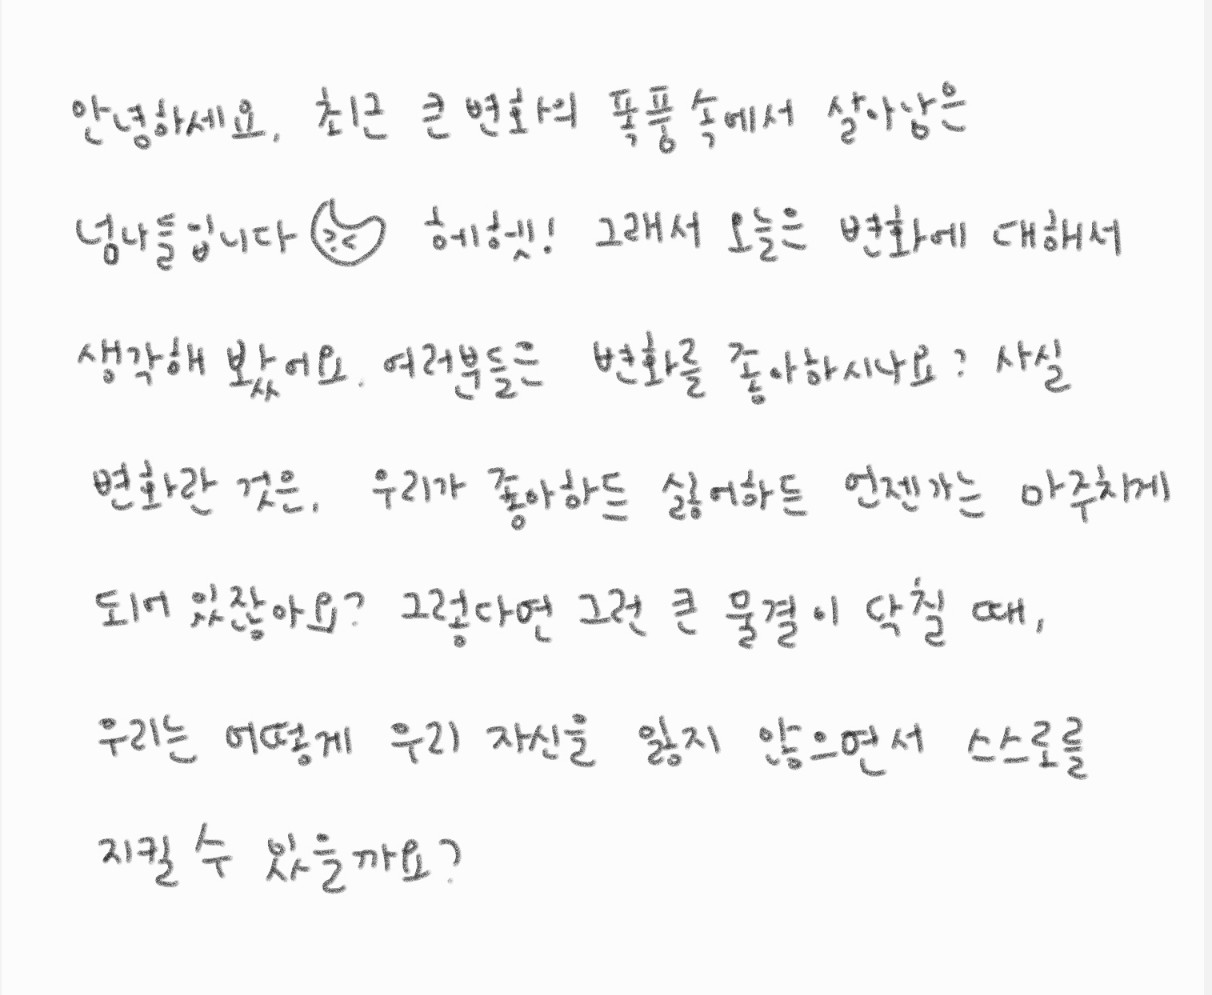 안녕하세요. 최근 큰 변화의 폭풍 속에서 살아남은
넘나들입니다 헤헷! 그래서 오늘은 변화에 대해서
생각해 봤어요. 여러분들은 변화를 좋아하시나요? 사실
변화란 것은, 우리가 좋아하든 싫어하든 언젠가는 마주치게
되어 있잖아요? 그렇다면 그런 큰 물결이 닥칠 때,
우리는 어떻게 우리 자신을 잃지 않으면서 스스로를
지킬 수 있을까요?